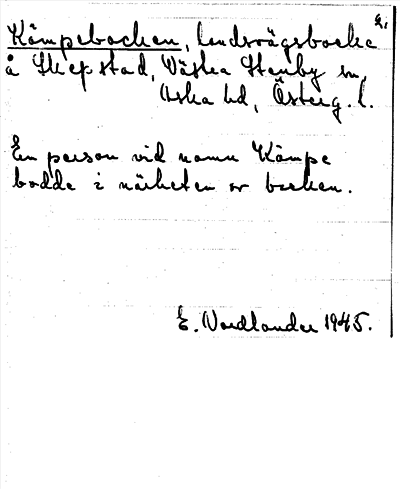 E.
Kämpebacken, landsvägsbacke
å Skepstad, Västra Stenby sn,
Aska hd, Österg. l.
En person vid namn Kämpe
bodde i närheten av backen.
E. Nordlander 1945.